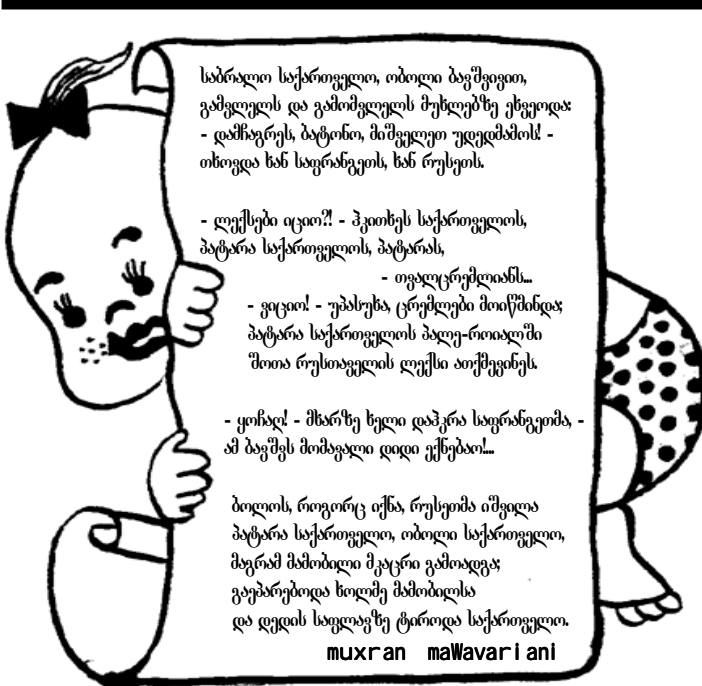 საბრალო საქართველო, ობოლი ბავშვივით,
გამვლელს და გამომვლელს მუხლებზე ეხვეოდა:
- დამჩაგრეს, ბატონო, მიშველეთ უდედმამოს! -
თხოვდა ხან საფრანგეთს, ხან რუსეთს.
- ლექსები იციო?! - ჰკითხეს საქართველოს,
პატარა საქართველოს, პატარას,
- თვალცრემლიანს...
- ვიციო! - უპასუხა, ცრემლები მოიწმინდა;
პატარა საქართველოს პალე-როიალში
შოთა რუსთაველის ლექსი ათქმევინეს.
- ყოჩაღ! - მხარზე ხელი დაჰკრა საფრანგეთმა, -
ამ ბავშვს მომავალი დიდი ექნებაო!...
ბოლოს, როგორც იქნა, რუსეთმა იშვილა
პატარა საქართველო, ობოლი საქართველო,
მაგრამ მამობილი მკაცრი გამოადგა;
გაეპარებოდა ხოლმე მამობილსა
და დედის საფლავზე ტიროდა საქართველო.
muxran maWavariani